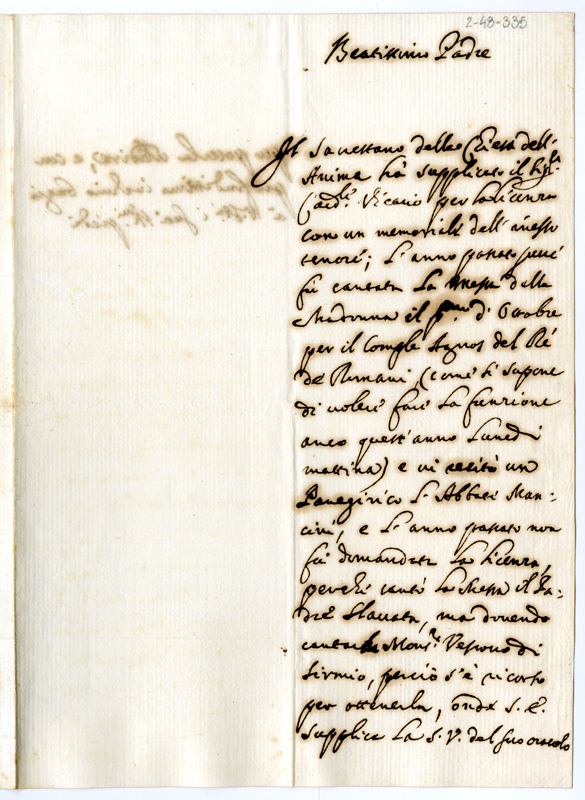 2-48-335
Beatissimo Padre
Il Sacrestano della Chiesa dell'
Anima hà supplicato il Sig.r
Card.le Vicario per la licenza
con un memoriale dell'annesso
tenore; L'anno passato però
fù cantata La Messa della
Madonna il p.mo d'Ottobre
per il Comple Agnos del Rè
de Romani, (come si supone
di volere fare La funzione
anco quest'anno Lunedì
mattina) e vi recitò un
Panegirico L'Abbate Man=
cini, e L'anno passato non
fù domandata La licenza,
perchè cantò La Messa il Pa=
dre Slavata, ma dovendo
cantarla Mons.r Vescovo di
Sirmio, perciò s'è ricorso
per ottenerla, onde S. E.
supplica La S. V. del suo oracolo